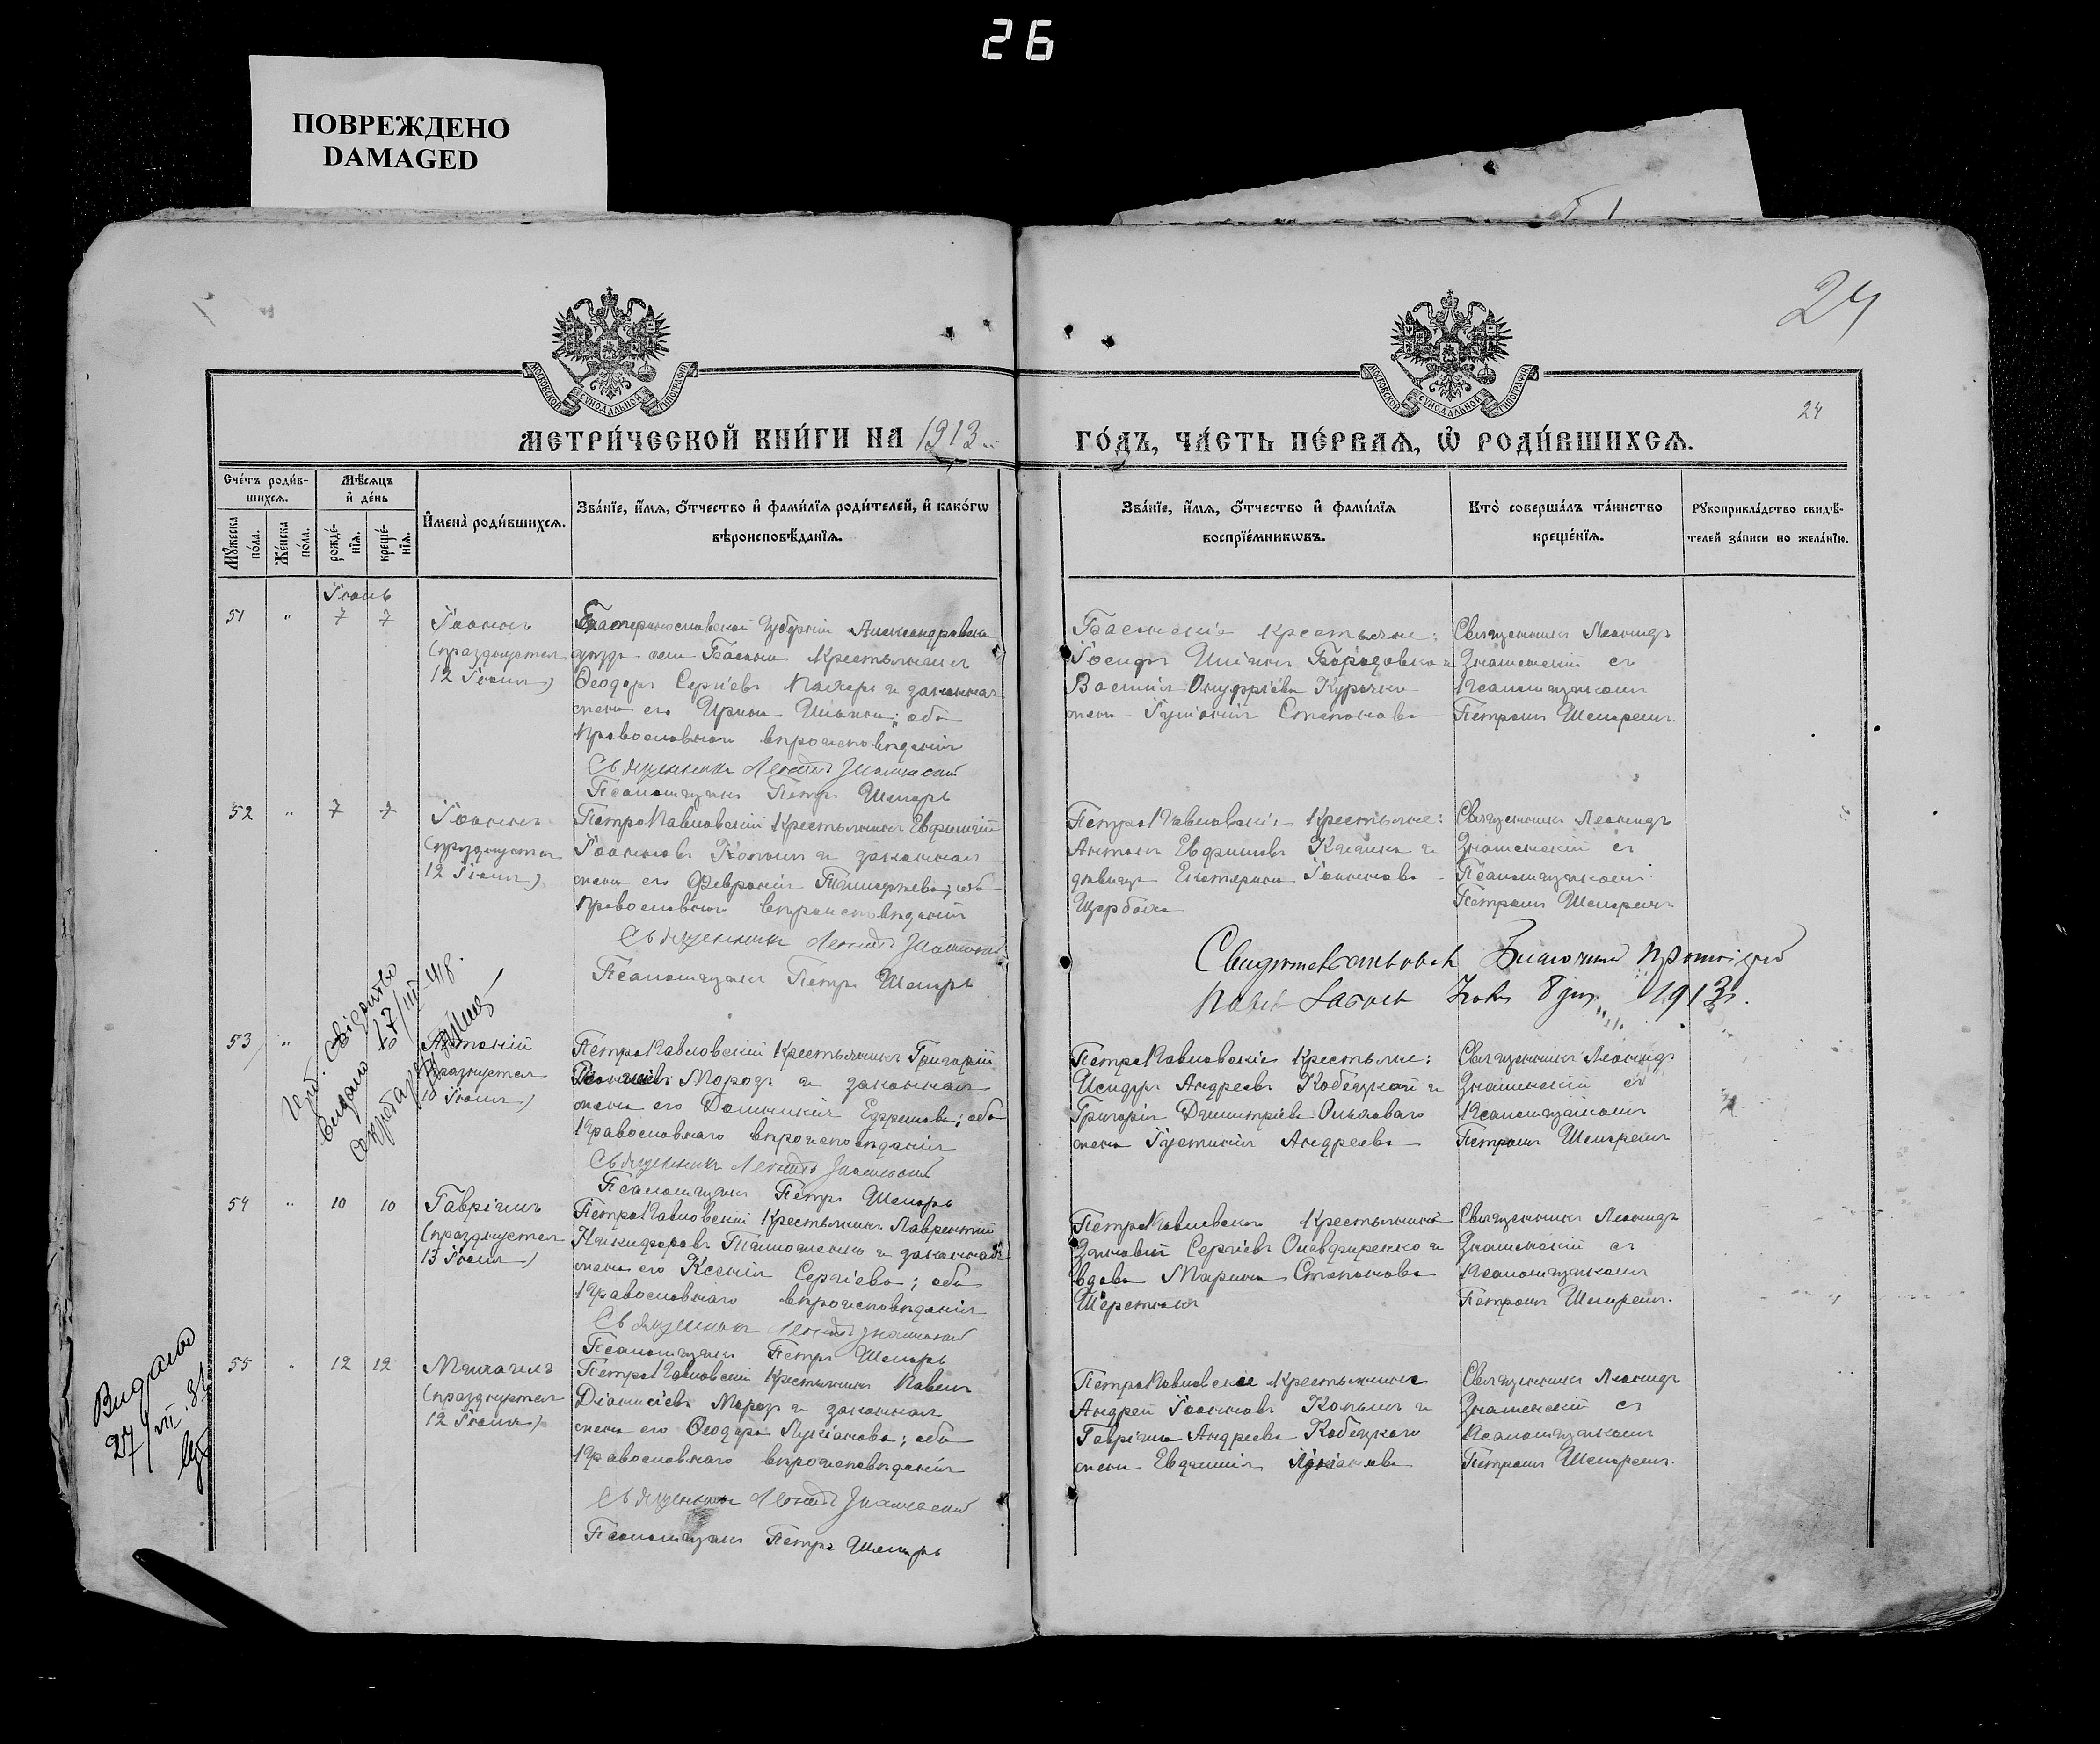 26
ПОВРЕЖДЕНО
DAMAGED
24
24
МОСКОВСКОЙ СУНОДАЛЬНОЙ ТИПОГРАФІИ
МОСКОВСКОЙ СУНОДАЛЬНОЙ ТИПОГРАФІИ
МЕТРИ́ЧЕСКОЙ КНИ́ГИ НА 1913
ГО́ДЪ, ЧА́СТЬ ПЕ́РВАѦ, Ѡ҆ РОДИ́ВШИХСѦ.
Сче́тъ роди́в-
шихсѧ.
Мꙋжеска по́ла.
Же́нска по́ла.
Мѣ́сѧцъ
и҆ де́нь
рожде́-
нїѧ.
креще́-
нїѧ.
И҆мена̀ роди́вшихсѧ.
Зва́нїе, и҆́мѧ, ѻ҆́тчество и҆ фами́лїѧ роди́телей, и҆ како́гѡ
вѣроисповѣ́данїѧ.
Зва́нїе, и҆́мѧ, ѻ҆́тчество и҆ фами́лїѧ
воспрїе́мникѡвъ.
Кто̀ соверша́лъ та́инство
креще́нїѧ.
Рꙋкоприкла́дство свидѣ́-
телей за́писи по жела́нїю.
Іюнь
51 " 7 7
Іоаннъ
(празднуется
12 Іюня)
Екатеринославской губерніи Александровска
уезда села Басани крестьянинъ
Ѳеодоръ Сергіевъ и законная
жена его Ирина Ильина; оба
Православнаго вѣроисповѣданія
Священникъ Леонидъ Знаменскій
Псаломщикъ Петръ Шепарь
Басанскіе крестьяне:
Іосифъ Ильинъ Бородавка и
Василія Онуфріева Курочки
жена Іуліанія Степанова
Священникъ Леонидъ
Знаменскій съ
Псаломщикомъ
Петромъ Шепаремъ
52 " 7 7
Іоаннъ
(празднуется
12 Іюня)
ПетроПавловскій Крестьянинъ Евфимій
Іоанновъ Копыл и законная
жена его Февронія; оба
Православнаго вѣроисповѣданія
Священникъ Леонидъ Знаменскій
Псаломщикъ Петръ Шепарь
ПетроПавловскіе Крестьяне:
Антонъ Евфимовъ и
дѣвица Екатерина Іоаннова
Щербака
Священникъ Леонидъ
Знаменскій съ
Псаломщикомъ
Петромъ Шепаремъ
Свидѣтельствовалъ Благочинный Протоіерей
1913
видано 17/III-418.
53 "
Антоній
(празднуется
10 Іюня)
ПетроПавловскій Крестьянинъ Григорій
Мороз и законная
жена его Домникія Ефремова; оба
Православнаго вѣроисповѣданія
Священникъ Леонидъ Знаменскій
Псаломщикъ Петръ Шепарь
ПетроПавловскіе Крестьяне:
Исидоръ Андреевъ Кобецкой и
Григорія Димитріева Ольховаго
жена Іустинія Андреева
Священникъ Леонидъ
Знаменскій съ
Псаломщикомъ
Петромъ Шепаремъ
54 " 10 10
Гавріилъ
(празднуется
13 Іюля)
ПетроПавловскій Крестьянинъ Лаврентій
Никифоровъ Тимошенко и законная
жена его Ксенія Сергіева; оба
Православнаго вѣроисповѣданія
Священникъ Леонидъ Знаменскій
Псаломщикъ Петръ Шепарь
ПетроПавловскіе Крестьянинъ
Зиновій Сергіевъ и
вдова Марина Степанова
Шереметъ
Священникъ Леонидъ
Знаменскій съ
Псаломщикомъ
Петромъ Шепаремъ.
Видано
27/VII
55 " 12 12
Михаилъ
(празднуется
12 Іюля)
ПетроПавловскій Крестьянинъ Павелъ
Діонисіевъ Мороз и законная
жена его Ѳеодора Лукіанова; оба
Православнаго вѣроисповѣданія
Священникъ Леонидъ Знаменскій
Псаломщикъ Петръ Шепарь
ПетроПавловскіе крестьянинъ
Андрей Іоанновъ Копыл и
Гавріила Андреева Кобецкаго
жена Евфимія Лукіанова
Священникъ Леонидъ
Знаменскій съ
Псаломщикомъ
Петромъ Шепаремъ.